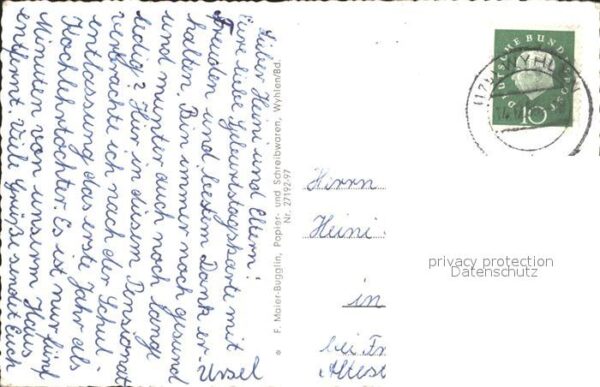 Lieber Heini und Eltern!
Eure liebe Geburtstagskarte mit
Freuden und bestem Dank er-
halten. Bin immer noch gesund
und munter auch noch lange
ledig? Hier in diesem Pensionat
verbrachte ich nach der Schul
entlassung das erste Jahr als
Kochlehrtochter. Es ist nur fünf
Minuten von unserm Haus
entfernt. Viele Grüße sendet Euch
Ursel
F. Maier-Bugglin, Papier- und Schreibwaren, Wyhlen/Bd.
Nr. 27192-97
DEUTSCHE BUNDESPOST
10
WYHLEN
Herrn
Heini
in
bei Fr
privacy protection
Datenschutz